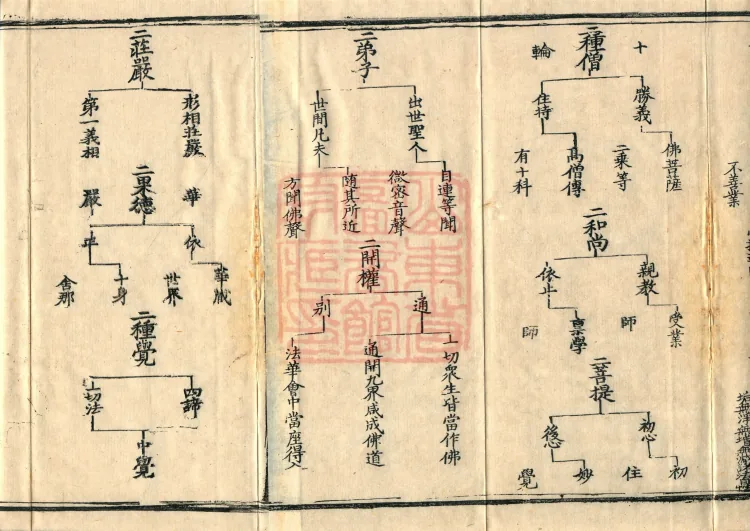 不善業
二種僧
十
輪
勝義
佛菩薩
二乘等
住持
高僧傳
有十科
二和尚
親教
受業
師
依止
稟學
師
二菩提
初心
初
住
後心
妙
覺
二弟子
出世聖人
目連等聞
微密音聲
世間凡夫
隨其所近
方聞佛聲
二開權
通
一切衆生皆當作佛
通開九界咸成佛道
別
法華會中當座得入
二莊嚴
形相莊嚴
華
第一義相
嚴
二果德
依
華藏
世界
十身
舍那
二種覺
四諦
一切法
中覺